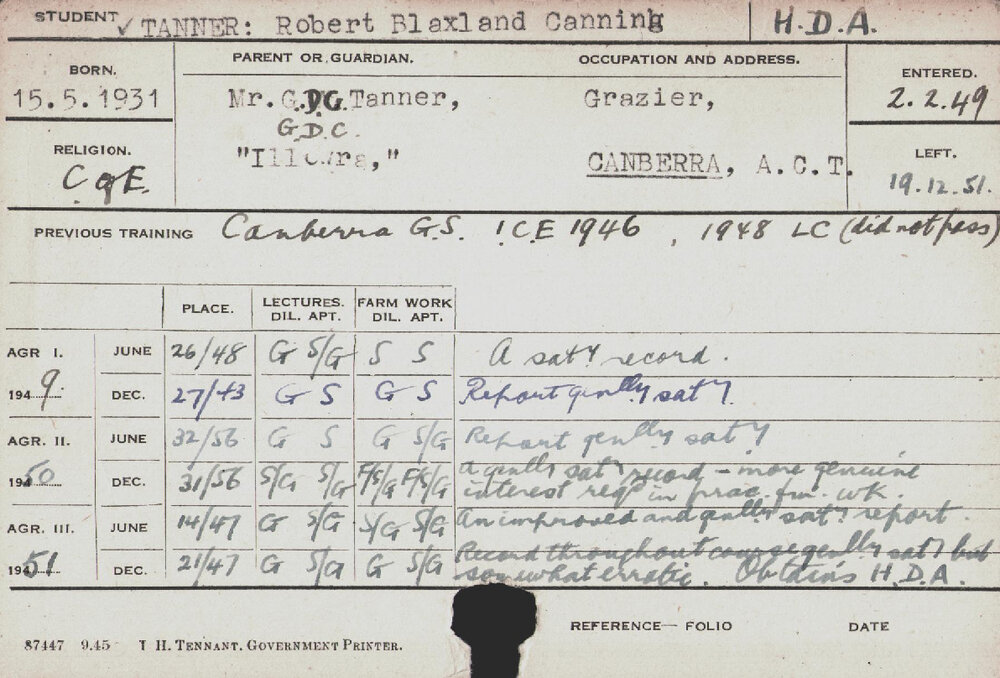 STUDENT ✓ TANNER: Robert Blaxland Canning H.D.A.
BORN. PARENT OR GUARDIAN. OCCUPATION AND ADDRESS. ENTERED.
15.5.1931 Mr. G.D.G. Tanner, Grazier, 2.2.49
G.D.C.
RELIGION. "Illowra," CANBERRA, A.C.T. LEFT.
C of E. 19.12.51.
PREVIOUS TRAINING Canberra G.S. I.C.E 1946, 1948 LC (did not pass)
PLACE. LECTURES. DIL. APT. FARM WORK DIL. APT.
AGR I. JUNE 26/48 G S/G S S A saty record.
1949 DEC. 27/43 G S G S Report genlly saty.
AGR. II. JUNE 32/56 G S G S/G Report genlly saty
1950 DEC. 31/56 S/G S/G F/S/G F/S/G A genlly saty record - more genuine
interest reqd in prac. fm. wk.
AGR. III. JUNE 14/47 G S/G S/G S/G An improved and genlly saty report.
1951 DEC. 21/47 G S/G G S/G Record throughout course genlly saty but
somewhat erratic. Obtains H.D.A.
REFERENCE— FOLIO DATE
87447 9.45 T H. TENNANT, GOVERNMENT PRINTER.